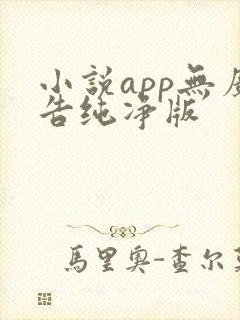 小説app無廣
告纯净版
馬里奧-查尔萊